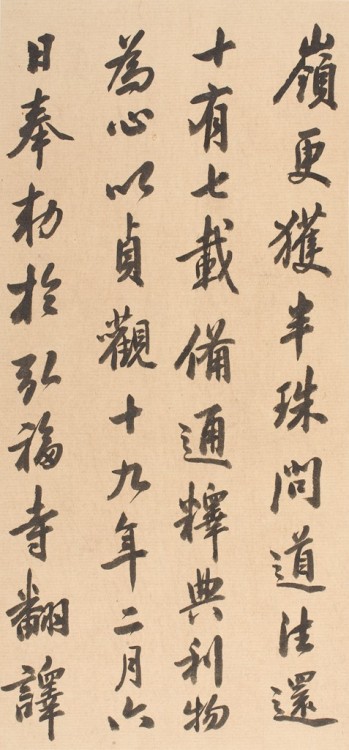 嶺更獲半珠問道往還
十有七載備通釋典利物
為心以貞觀十九年二月六
日奉勅於弘福寺翻譯